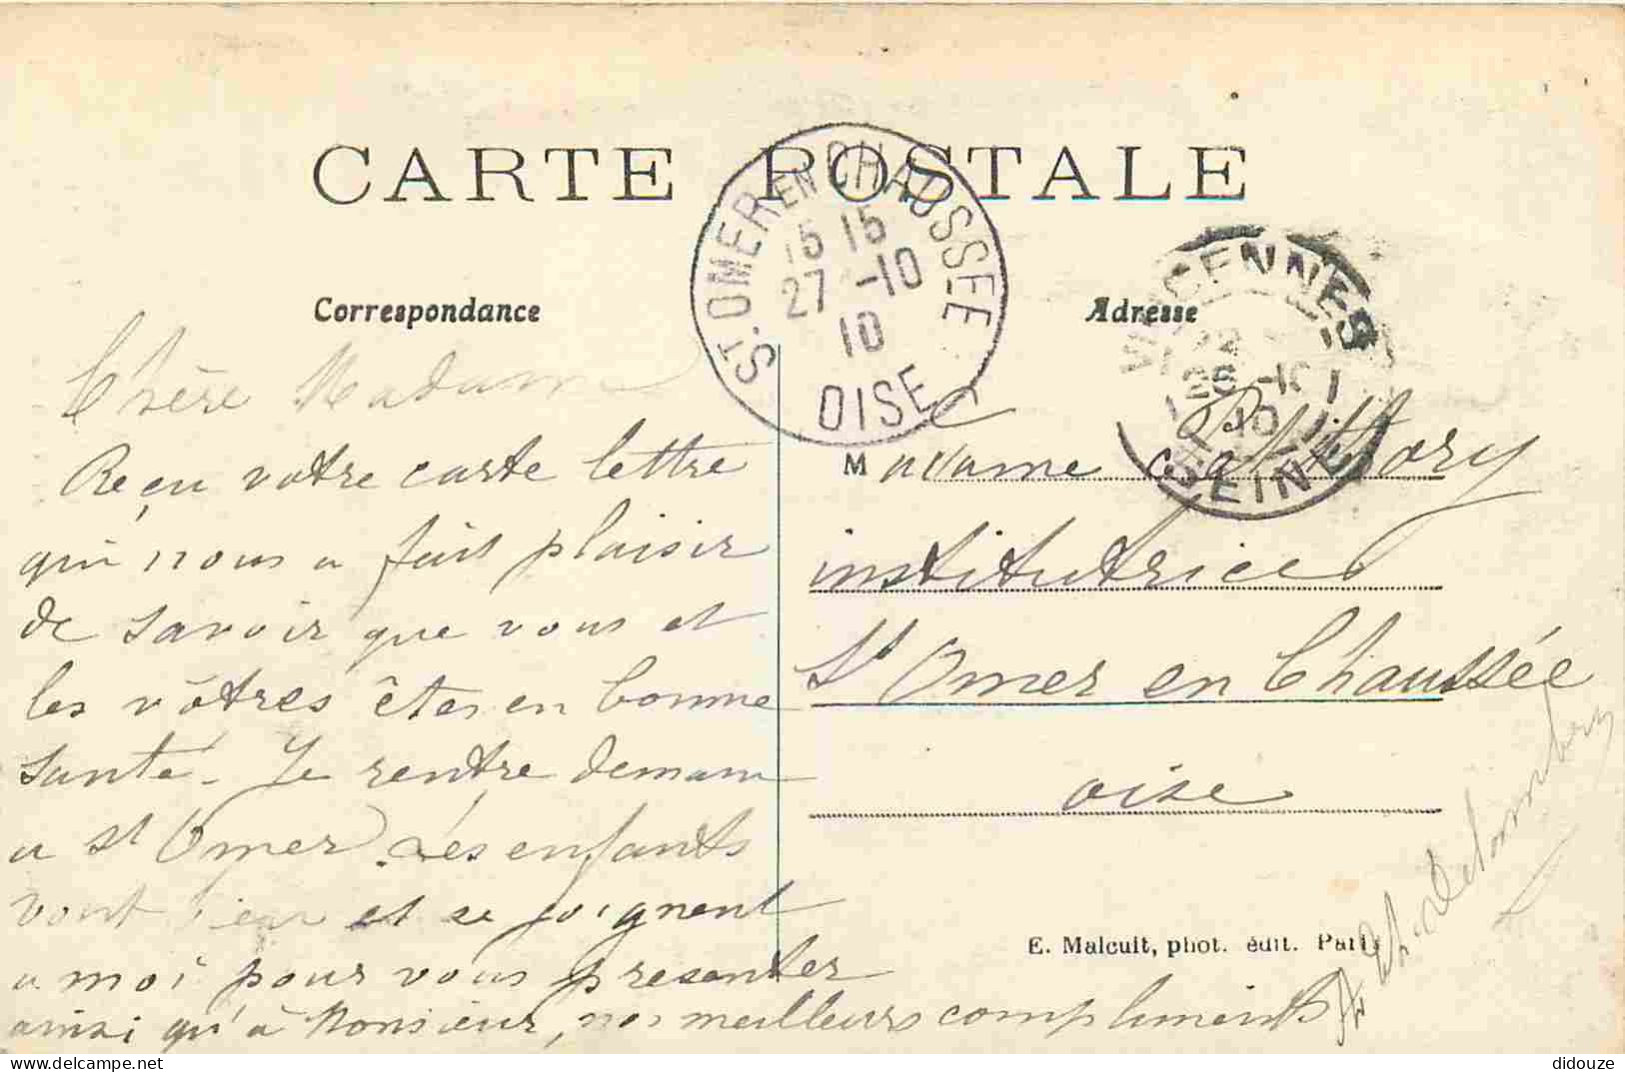 CARTE POSTALE
ST. OMER EN CHAUSSEE
15 15
27 -10
10
OISE
VINCENNES
10
SEINE
Correspondance
Chère Madame
Reçu votre carte lettre
qui nous a fait plaisir
de savoir que vous et
les vôtres êtes en bonne
santé. Je rentre demain
a st Omer. Les enfants
vont bien et se joignent
a moi pour vous présenter
ainsi qu'à Monsieur, nos meilleurs compliments
Adresse
Madame
institutrice
St Omer en Chaussée
oise
E. Malcuit, phot. édit. Paris
didouze